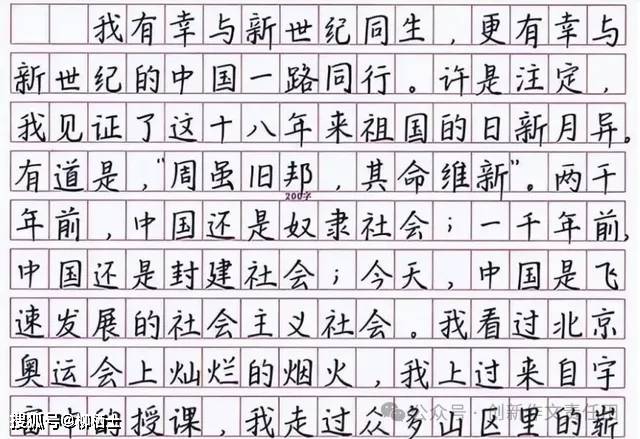 我有幸与新世纪同生，更有幸与
新世纪的中国一路同行。许是注定，
我见证了这十八年来祖国的日新月异。
有道是，“周虽旧邦，其命维新”。两千
200字
年前，中国还是奴隶社会；一千年前，
中国还是封建社会；今天，中国是飞
速发展的社会主义社会。我看过北京
奥运会上灿烂的烟火，我上过来自宇
中的授课，我走过众多山区里的崭
搜狐号@
公众号·创新作文责任